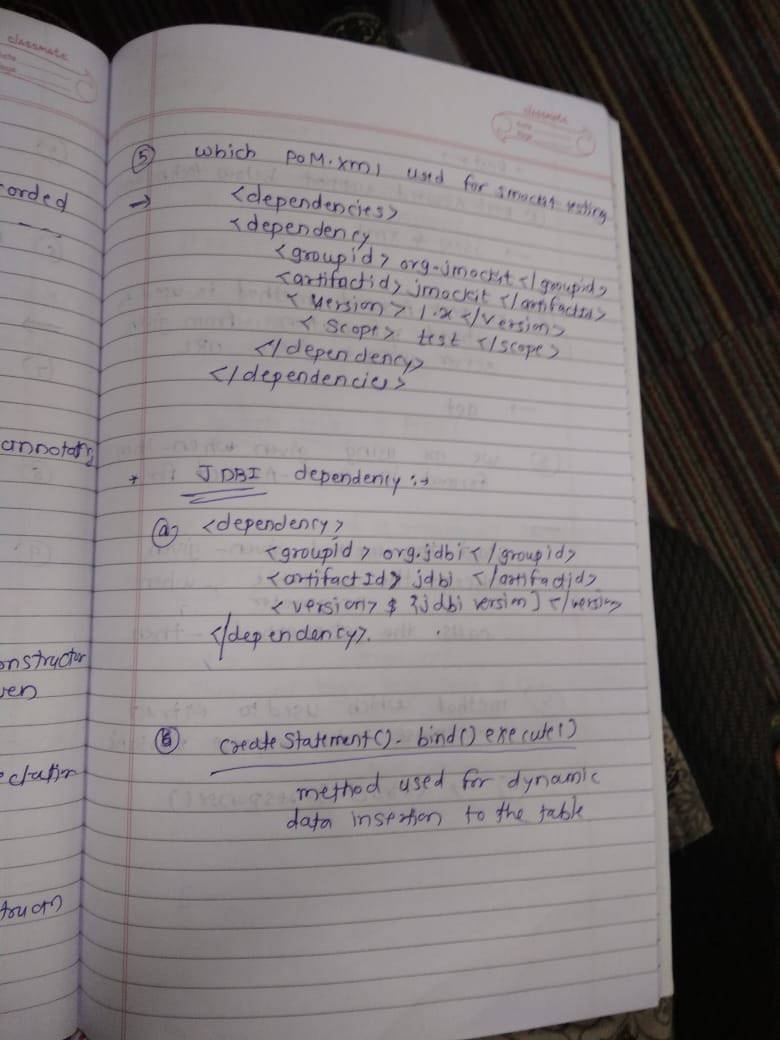 classmate
orded
annotatn
onstructor
ven
eclatin
truct
classmate
Date
Page
⑤ which POM.xml used for Jmockit testing
→ <dependencies>
<dependency
<groupid> org.jmockit </groupid>
<artifactid> jmockit </artifactId>
< version > 1.x </version>
< scope> test </scope>
</dependency>
</dependencies>
* JDBI dependency :→
ⓐ <dependency>
<groupid> org.jdbi </groupid>
<artifactId> jdbi </artifactid>
< version> $ {jdbi version} </version>
</dependency>.
ⓑ createStatement(). bind() execute()
method used for dynamic
data insertion to the table